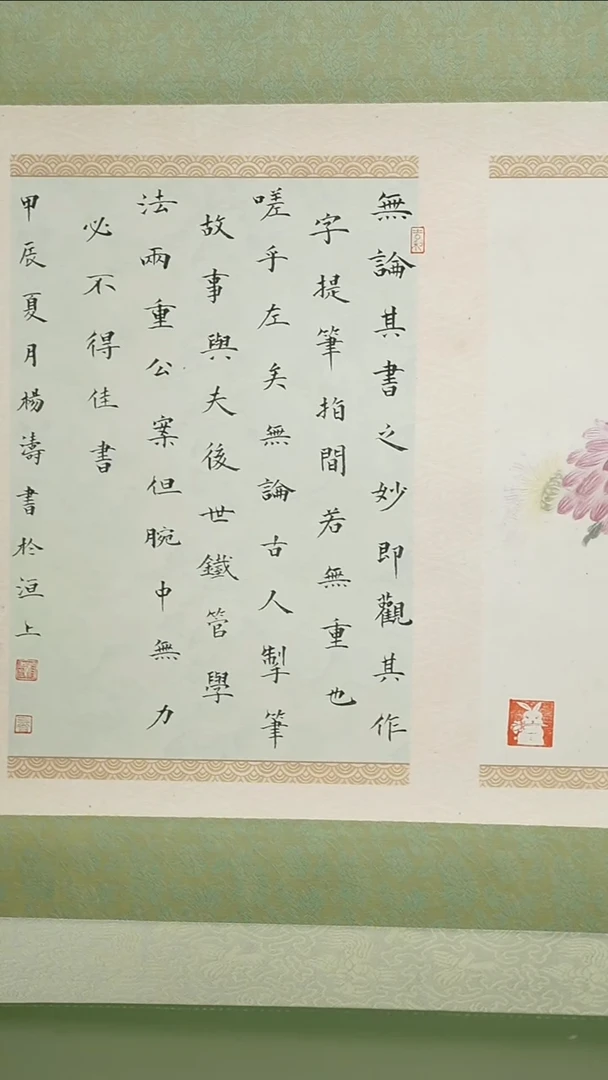 無論其書之妙即觀其作
字提筆指間若無重也
嗟乎左矣無論古人掣筆
故事與夫後世鐵管學
法兩重公案但腕中無力
必不得佳書
甲辰夏月楊濤書於洹上